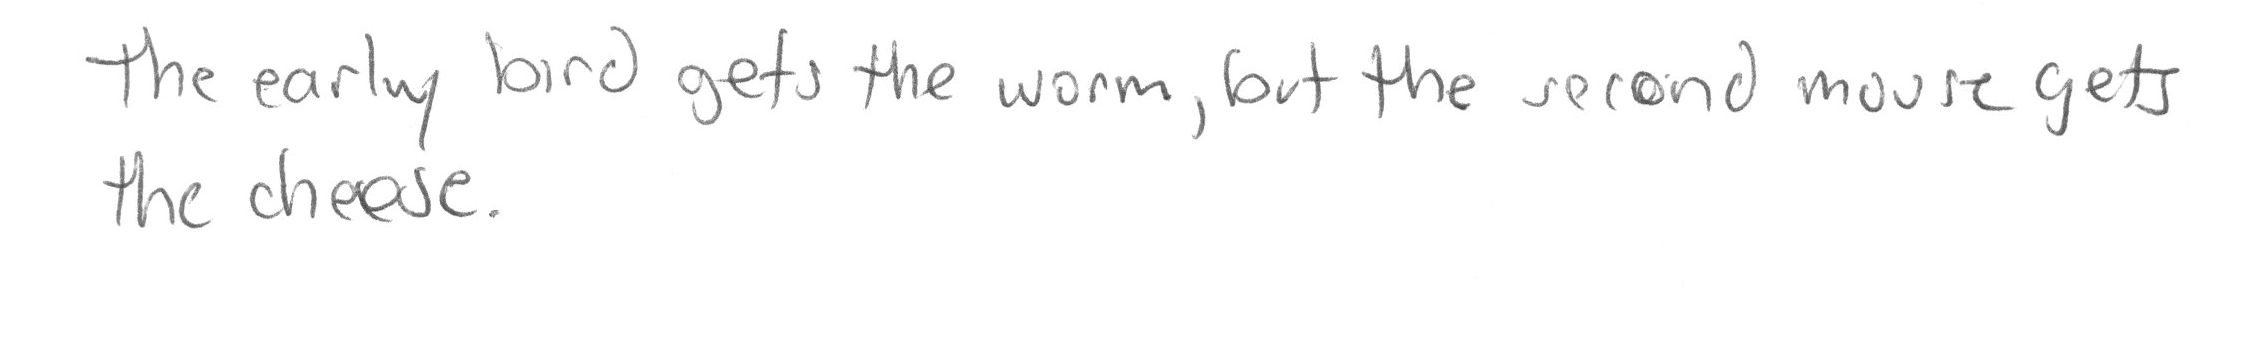 the early bird gets the worm, but the second mouse gets
the cheese.